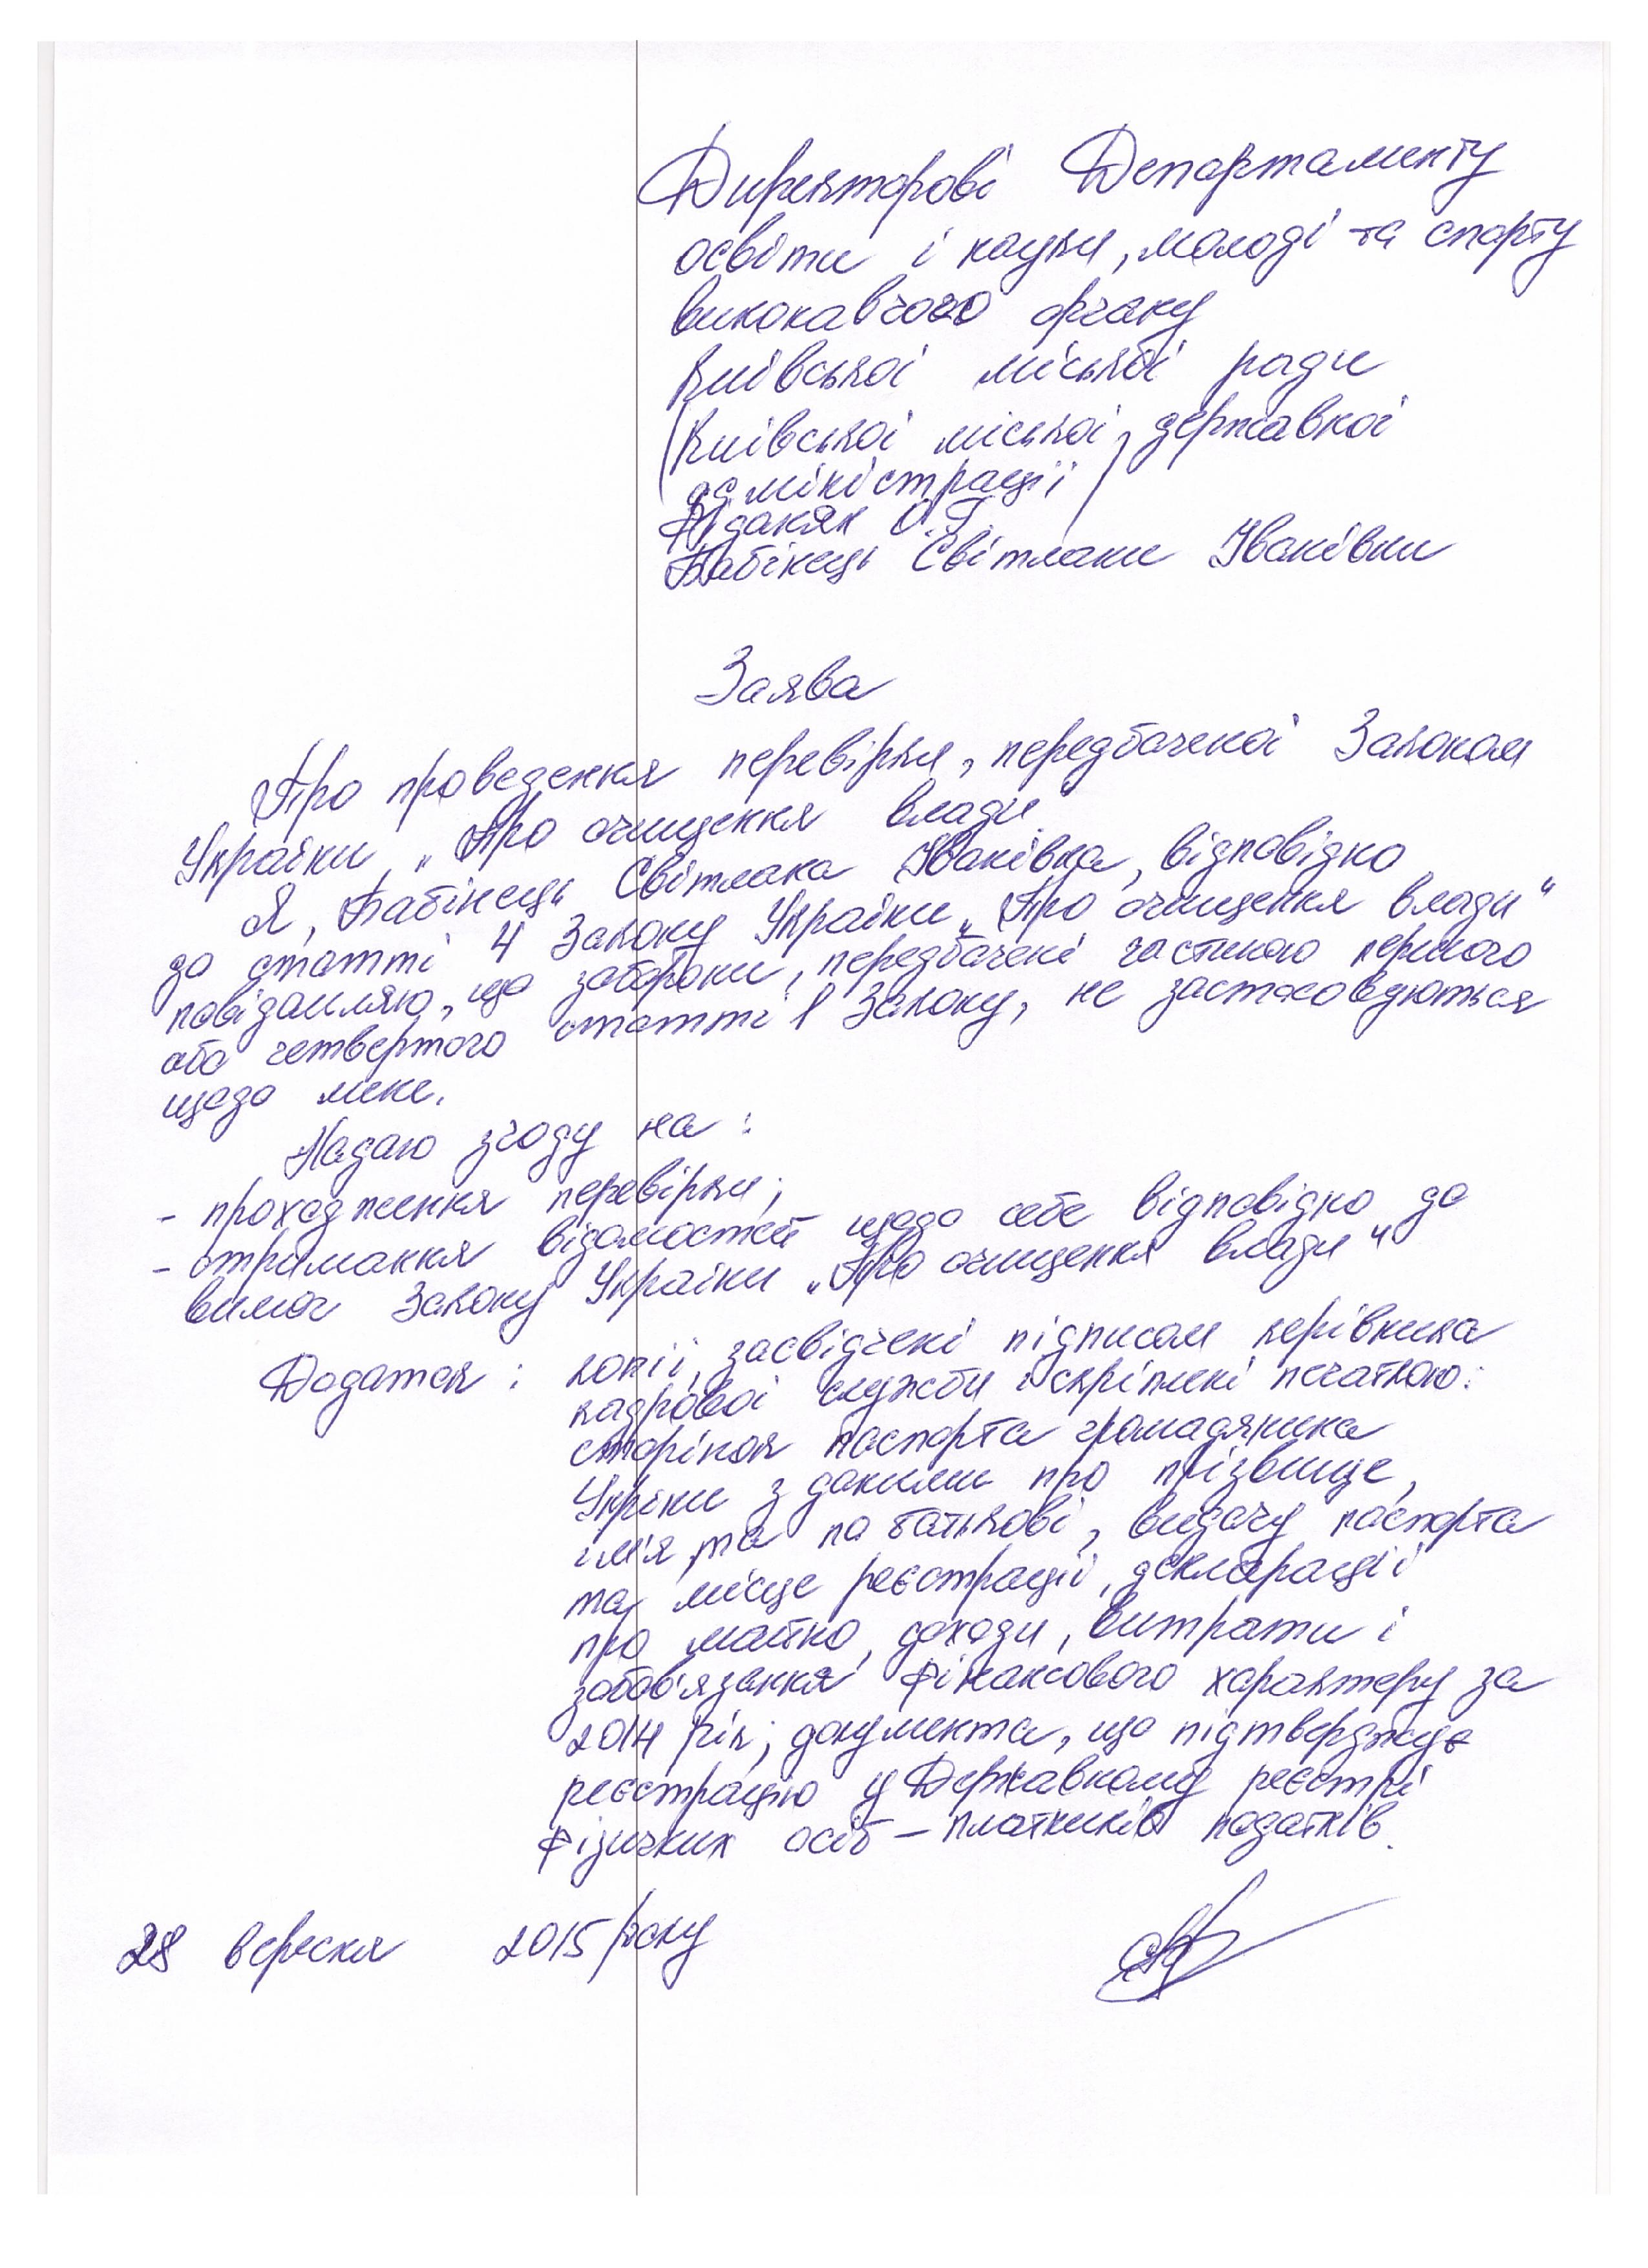 Директорові Департаменту
освіти і науки, молоді та спорту
виконавчого органу
Київської міської ради
(Київської міської державної
адміністрації)
Фіданян О.Г.
Бабінець Світлани Іванівни
Заява
Про проведення перевірки, передбаченої Законом
України „Про очищення влади“
Я, Бабінець Світлана Іванівна, відповідно
до статті 4 Закону України „Про очищення влади“
повідомляю, що заборони, передбачені частиною першою
або четвертого статті 1 Закону, не застосовуються
щодо мене.
Надаю згоду на:
- проходження перевірки;
- отримання відомостей щодо себе відповідно до
вимог Закону України „Про очищення влади“
Додаток: копії, засвідчені підписом керівника
кадрової служби і скріплені печаткою:
сторінок паспорта громадянина
Укріни з даними про прізвище,
ім'я та по батькові, видачу паспорта
та місце реєстрації, декларації
про майно, доходи, витрати і
зобов'язання фінансового характеру за
2014 рік; документа, що підтверджує
реєстрацію у Державному реєстрі
фізичних осіб – платників податків.
28 вересня 2015 року